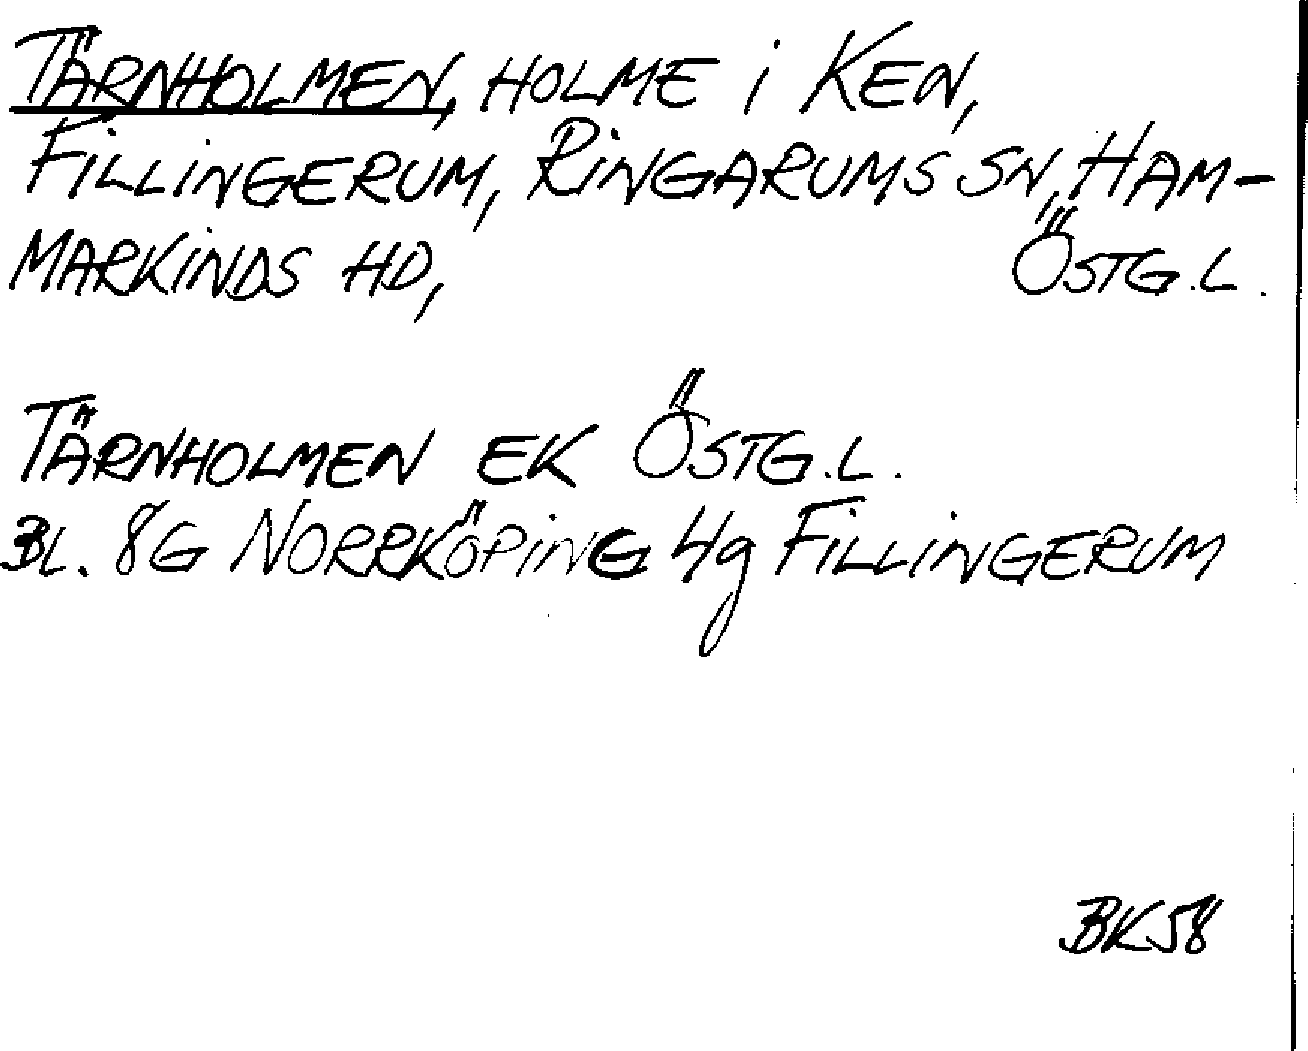 TÄRNHOLMEN, HOLME i KEN,
FiLLiNGERUM, RiNGARUMS SN, HAM-
MARKiNDS HD, ÖSTG.L.
TÄRNHOLMEN EK ÖSTG.L.
BL. 8G NORRKÖPiNG 4g FiLLiNGERUM
BK58